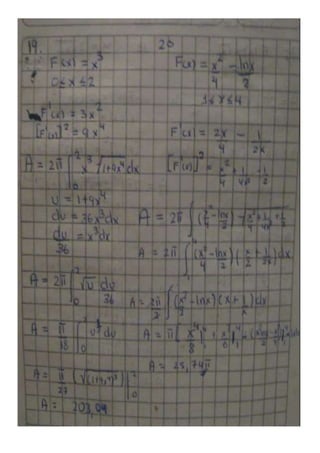 19.
F(x) = x³
0 ≤ x ≤ 2
F'(x) = 3x²
[F'(x)]² = 9x⁴
A = 2π ∫₀² x³ √(1+9x⁴) dx
u = 1+9x⁴
du = 36x³dx
du/36 = x³dx
A = 2π ∫₀² √u du/36
A = π/18 ∫₀² u^½ du
A = π/27 (√(1+9x⁴)³)|₀²
A = 203,04
20
F(x) = x²/4 - lnx/2
1 ≤ x ≤ 4
F'(x) = 2x/4 - 1/2x
[F'(x)]² =
A = 2π
A = 2π ∫₁⁴ (x²/4 - lnx/2)(x/2 + 1/2x)dx
A = 2π/2 ∫ (x²/2 - lnx)(x + 1/x)dx
A = π
A = 25,74π